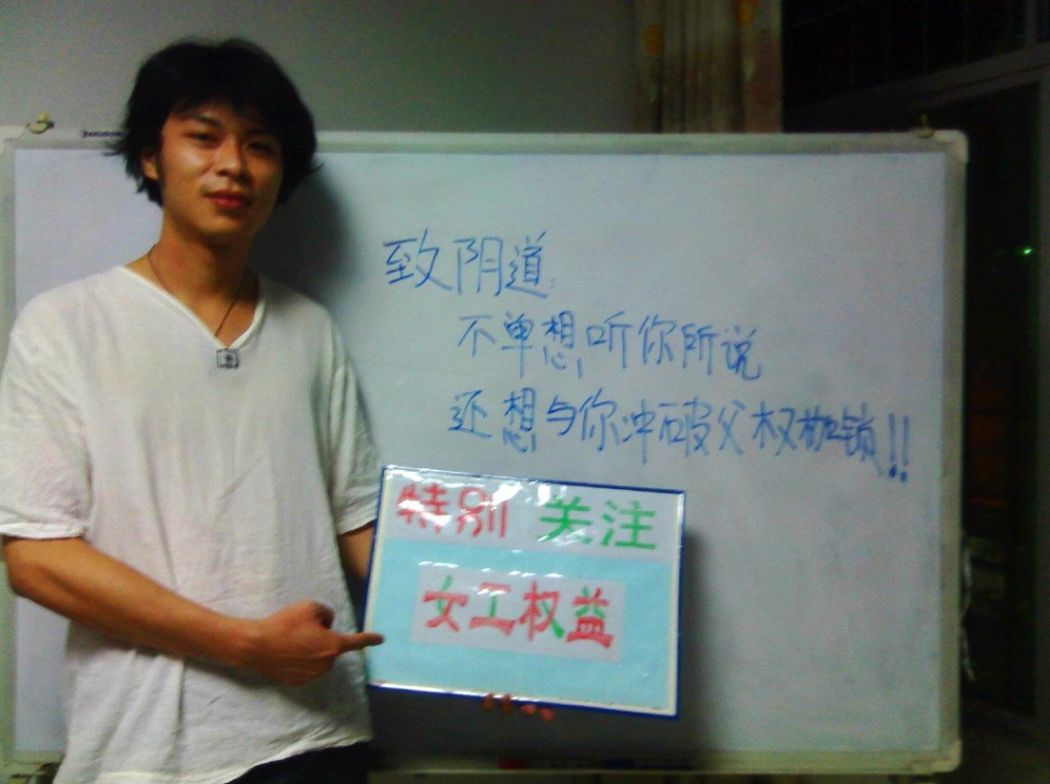 致阴道:
不单想听你所说
还想与你冲破父权枷锁!!
特别 关注
女工权益